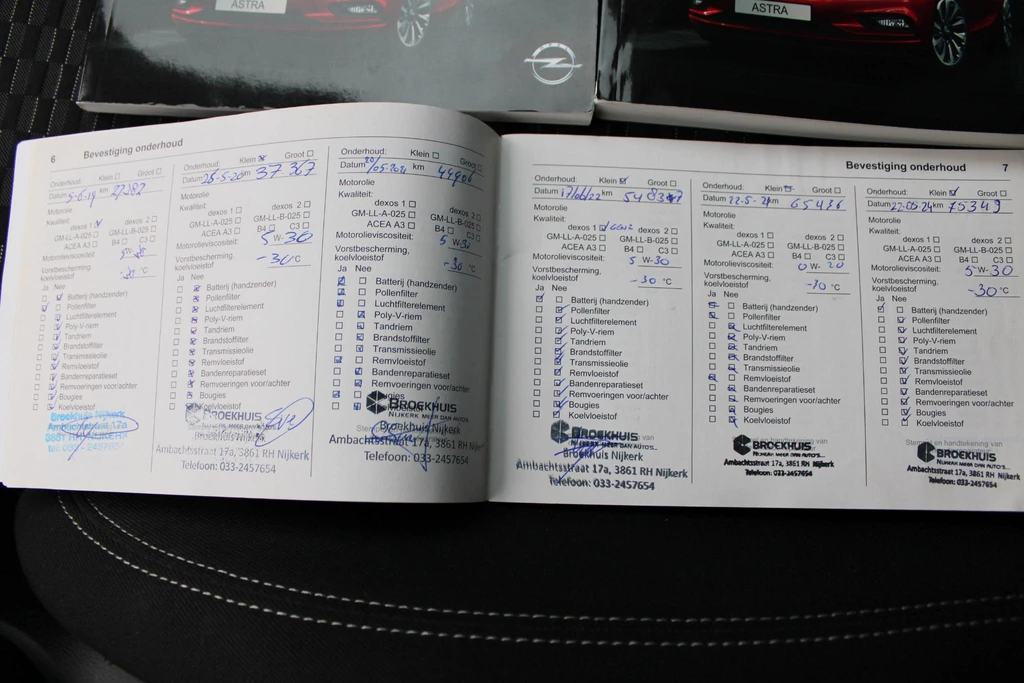 ASTRA
ASTRA
6 Bevestiging onderhoud
Onderhoud: Klein ☐ Groot ☐
Datum 5-6-19 km
Motorolie
Kwaliteit:
dexos 1 dexos 2 ☐
GM-LL-A-025 ☐ GM-LL-B-025 ☐
ACEA A3 ☐ B4 ☐ C3 ☐
Motorolieviscositeit: 5W-30
Vorstbescherming,
koelvloeistof °C
Ja Nee
Batterij (handzender)
Pollenfilter
Luchtfilterelement
Poly-V-riem
Tandriem
Brandstoffilter
Transmissieolie
Remvloeistof
Bandenreparatieset
Remvoeringen voor/achter
Bougies
Koelvloeistof
Broekhuis Nijkerk
Ambachtsstraat 17a
3861 RH NIJKERK
tel. 033 - 2457654
Onderhoud: Klein Groot ☐
Datum 25-5-20 km 37.367
Motorolie
Kwaliteit:
dexos 1 ☐ dexos 2 ☐
GM-LL-A-025 ☐ GM-LL-B-025 ☐
ACEA A3 ☐ B4 ☐ C3 ☐
Motorolieviscositeit: 5 W-30
Vorstbescherming,
koelvloeistof -30 °C
Ja Nee
Batterij (handzender)
Pollenfilter
Luchtfilterelement
Poly-V-riem
Tandriem
Brandstoffilter
Transmissieolie
Remvloeistof
Bandenreparatieset
Remvoeringen voor/achter
Bougies
Koelvloeistof
BROEKHUIS
Broekhuis Nijkerk
Ambachtsstraat 17a, 3861 RH Nijkerk
Telefoon: 033-2457654
Onderhoud: Klein ☐ Groot ☐
Datum 20/05-2021 km 44906
Motorolie
Kwaliteit:
dexos 1 ☐ dexos 2 ☐
GM-LL-A-025 ☐ GM-LL-B-025 ☐
ACEA A3 ☐ B4 ☐ C3 ☐
Motorolieviscositeit: 5 W-30
Vorstbescherming,
koelvloeistof -30 °C
Ja Nee
Batterij (handzender)
Pollenfilter
Luchtfilterelement
Poly-V-riem
Tandriem
Brandstoffilter
Transmissieolie
Remvloeistof
Bandenreparatieset
Remvoeringen voor/achter
Bougies
BROEKHUIS
NIJKERK MEER DAN AUTO'S...
Broekhuis Nijkerk
Ambachtsstraat 17a, 3861 RH Nijkerk
Telefoon: 033-2457654
Bevestiging onderhoud 7
Onderhoud: Klein ☑ Groot ☐
Datum 17/06/22 km
Motorolie
Kwaliteit:
dexos 1 dexos 2 ☐
GM-LL-A-025 ☐ GM-LL-B-025 ☐
ACEA A3 ☐ B4 ☐ C3 ☐
Motorolieviscositeit: 5 W-30
Vorstbescherming,
koelvloeistof -30 °C
Ja Nee
Batterij (handzender)
Pollenfilter
Luchtfilterelement
Poly-V-riem
Tandriem
Brandstoffilter
Transmissieolie
Remvloeistof
Bandenreparatieset
Remvoeringen voor/achter
Bougies
Koelvloeistof
BROEKHUIS
NIJKERK MEER DAN AUTO'S...
Broekhuis Nijkerk
Ambachtsstraat 17a, 3861 RH Nijkerk
Telefoon: 033-2457654
Onderhoud: Klein Groot ☐
Datum km 65436
Motorolie
Kwaliteit:
dexos 1 ☐ dexos 2 ☐
GM-LL-A-025 ☐ GM-LL-B-025 ☐
ACEA A3 ☐ B4 ☐ C3 ☐
Motorolieviscositeit: 0 W-20
Vorstbescherming,
koelvloeistof °C
Ja Nee
Batterij (handzender)
Pollenfilter
Luchtfilterelement
Poly-V-riem
Tandriem
Brandstoffilter
Transmissieolie
Remvloeistof
Bandenreparatieset
Remvoeringen voor/achter
Bougies
Koelvloeistof
BROEKHUIS
NIJKERK MEER DAN AUTO'S...
Ambachtsstraat 17a, 3861 RH Nijkerk
Telefoon: 033-2457654
Onderhoud: Klein ☑ Groot ☐
Datum 22-05-24 km 75349
Motorolie
Kwaliteit:
dexos 1 ☐ dexos 2 ☐
GM-LL-A-025 ☐ GM-LL-B-025 ☐
ACEA A3 ☐ B4 ☐ C3 ☐
Motorolieviscositeit: 5 W-30
Vorstbescherming,
koelvloeistof -30 °C
Ja Nee
Batterij (handzender)
Pollenfilter
Luchtfilterelement
Poly-V-riem
Tandriem
Brandstoffilter
Transmissieolie
Remvloeistof
Bandenreparatieset
Remvoeringen voor/achter
Bougies
Koelvloeistof
Stempel en handtekening van
BROEKHUIS
NIJKERK MEER DAN AUTO'S...
Ambachtsstraat 17a, 3861 RH Nijkerk
Telefoon: 033-2457654